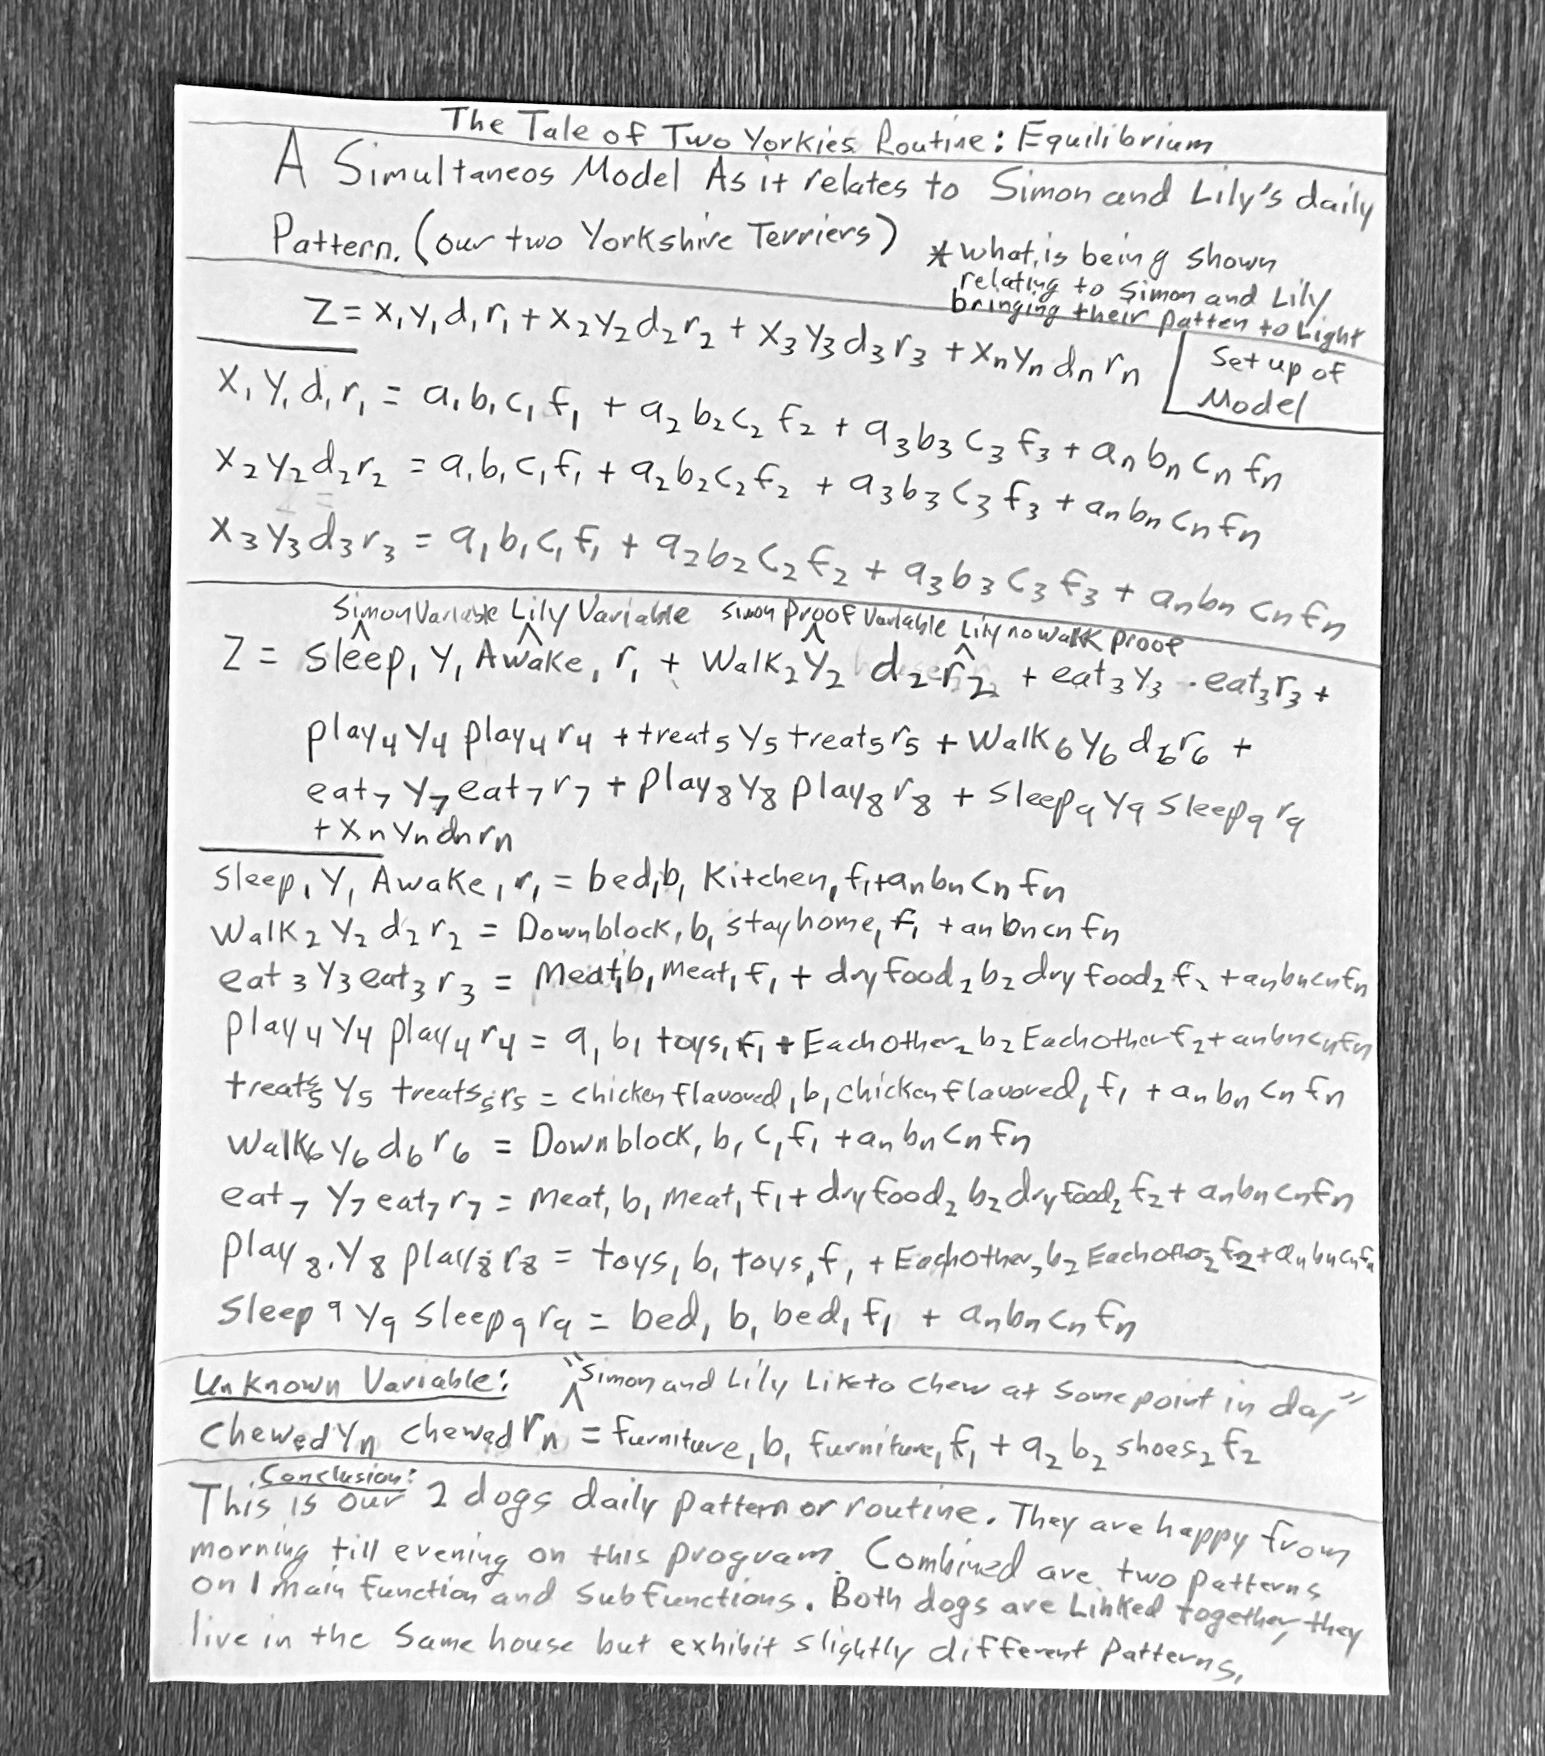 The Tale of Two Yorkies Routine: Equilibrium
A Simultaneos Model As it relates to Simon and Lily's daily
Pattern. (our two Yorkshire Terriers)
* what is being shown
relating to Simon and Lily
bringing their patten to Light
Z = x₁y₁d₁r₁ + x₂y₂d₂r₂ + x₃y₃d₃r₃ + xₙyₙdₙrₙ
Set up of
Model
x₁y₁d₁r₁ = a₁b₁c₁f₁ + a₂b₂c₂f₂ + a₃b₃c₃f₃ + aₙbₙcₙfₙ
x₂y₂d₂r₂ = a₁b₁c₁f₁ + a₂b₂c₂f₂ + a₃b₃c₃f₃ + aₙbₙcₙfₙ
x₃y₃d₃r₃ = a₁b₁c₁f₁ + a₂b₂c₂f₂ + a₃b₃c₃f₃ + aₙbₙcₙfₙ
Simon Variable Lily Variable Simon Proof Variable Lily no walk proof
Z = Sleep₁y₁Awake₁r₁ + Walk₂y₂ d₂r₂ + eat₃y₃ · eat₃r₃ +
play₄y₄ play₄r₄ + treats₅y₅treats₅r₅ + Walk₆y₆d₆r₆ +
eat₇y₇eat₇r₇ + play₈y₈ play₈r₈ + Sleep₉y₉ Sleep₉r₉
+ xₙyₙdₙrₙ
Sleep₁y₁ Awake₁r₁ = bed₁b₁ Kitchen₁f₁+aₙbₙcₙfₙ
Walk₂y₂d₂r₂ = Downblock₁b₁ stay home₁f₁ + aₙbₙcₙfₙ
eat₃y₃eat₃r₃ = Meat₁b₁meat₁f₁ + dry food₂b₂dry food₂f₂ + aₙbₙcₙfₙ
play₄y₄ play₄r₄ = a₁b₁ toys₁f₁ + Eachother₂b₂Eachotherf₂+aₙbₙcₙfₙ
treats₅y₅ treats₅r₅ = chicken flavored₁b₁chicken flavored₁f₁ + aₙbₙcₙfₙ
Walk₆y₆d₆r₆ = Downblock₁b₁c₁f₁ + aₙbₙcₙfₙ
eat₇y₇eat₇r₇ = Meat₁b₁meat₁f₁ + dry food₂b₂dry food₂f₂ + aₙbₙcₙfₙ
play₈.y₈ play₈r₈ = toys₁b₁toys₁f₁ + Eachother₂b₂Eachother₂f₂+aₙbₙcₙfₙ
Sleep₉y₉ Sleep₉r₉ = bed₁b₁bed₁f₁ + aₙbₙcₙfₙ
Unknown Variable: "Simon and Lily Like to chew at some point in day"
Chewedyₙ chewedrₙ = furniture₁b₁ furniture₁f₁ + a₂b₂shoes₂f₂
Conclusion:
This is our 2 dogs daily pattern or routine. They are happy from
morning till evening on this program. Combined are two patterns
on 1 main function and Subfunctions. Both dogs are Linked together, they
live in the Same house but exhibit slightly different patterns.